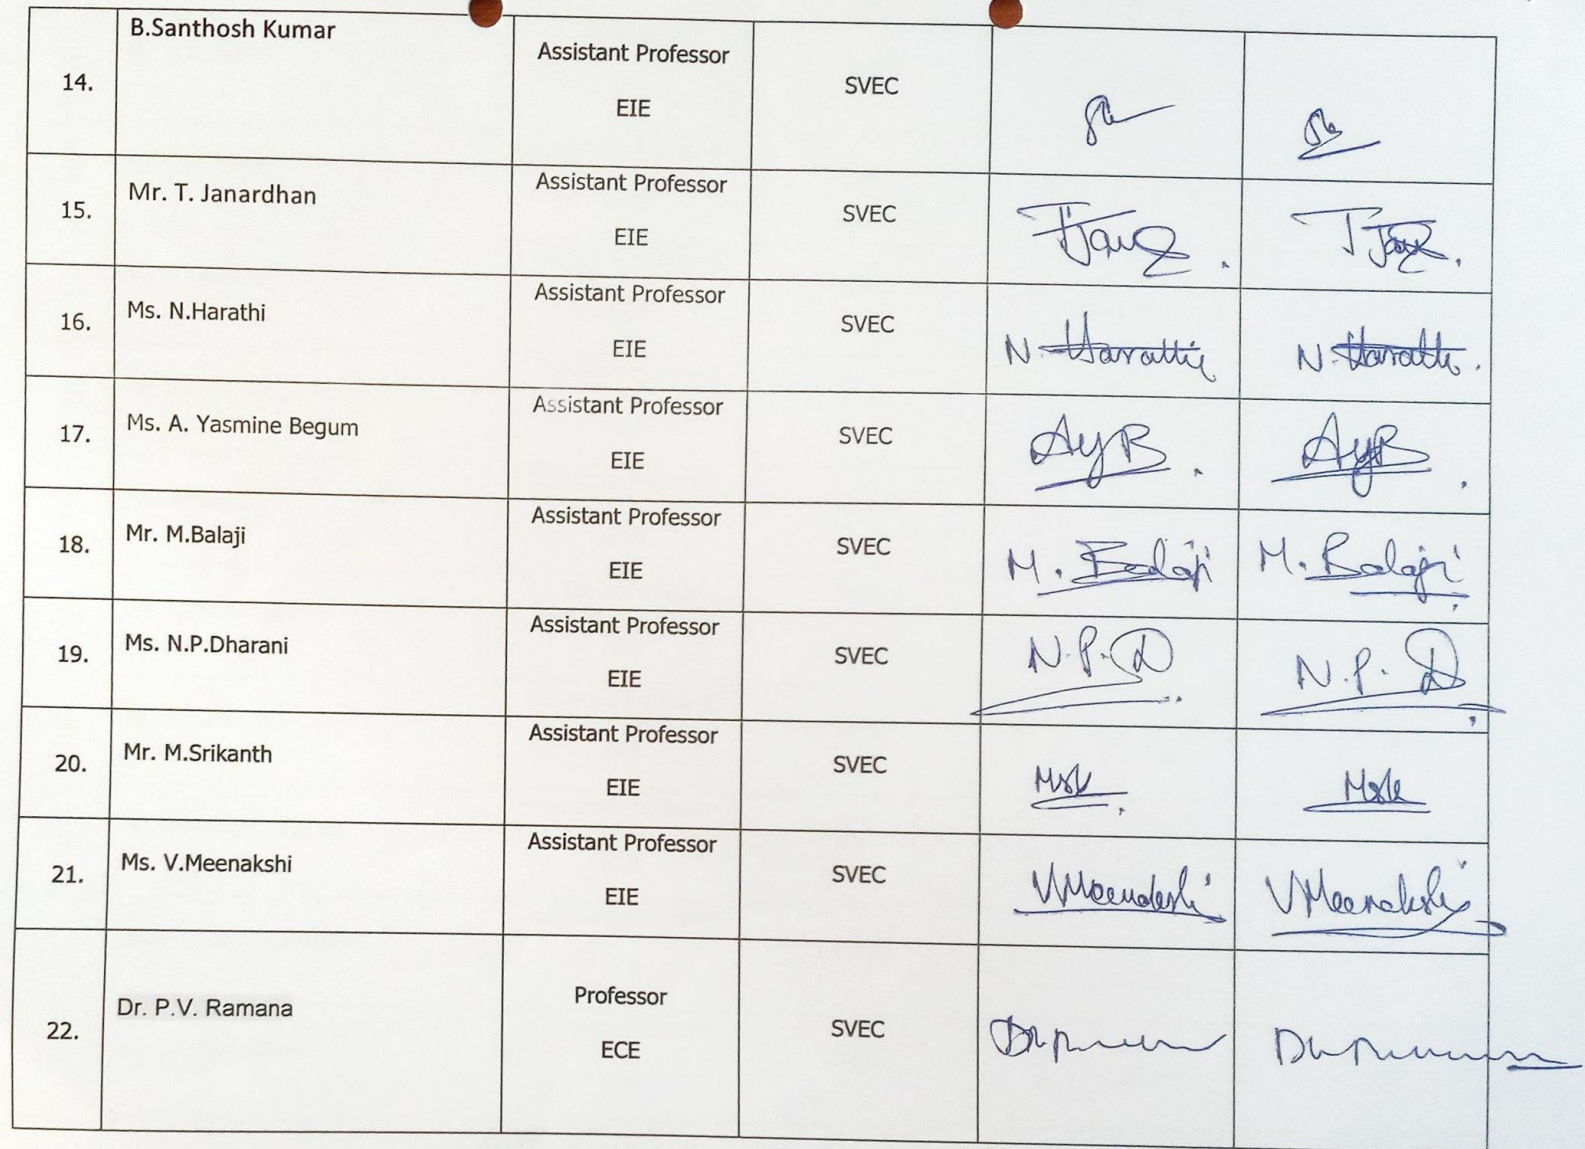 B.Santhosh Kumar
14.
Assistant Professor
EIE
SVEC
15.
Mr. T. Janardhan
Assistant Professor
EIE
SVEC
16.
Ms. N.Harathi
Assistant Professor
EIE
SVEC
N. Harathi
N. Harathi.
17.
Ms. A. Yasmine Begum
Assistant Professor
EIE
SVEC
AyB.
AyB.
18.
Mr. M.Balaji
Assistant Professor
EIE
SVEC
M. Balaji
M. Balaji
19.
Ms. N.P.Dharani
Assistant Professor
EIE
SVEC
N.P.D
N.P.D
20.
Mr. M.Srikanth
Assistant Professor
EIE
SVEC
21.
Ms. V.Meenakshi
Assistant Professor
EIE
SVEC
VMeenakshi
VMeenakshi
22.
Dr. P.V. Ramana
Professor
ECE
SVEC